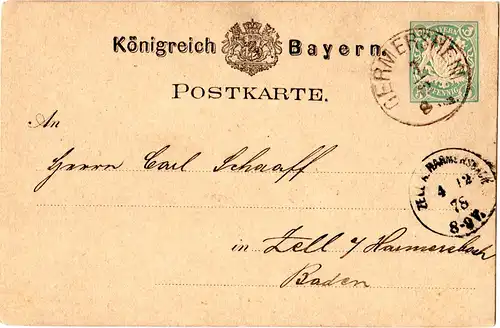 Königreich Bayern.
POSTKARTE.
GERMERSHEIM
PFENNIG
An
Herrn Carl Schaaff
ZELL A. HARMERSBACH
4 12
78
8-9V.
in Zell a/Harmersbach
Baden